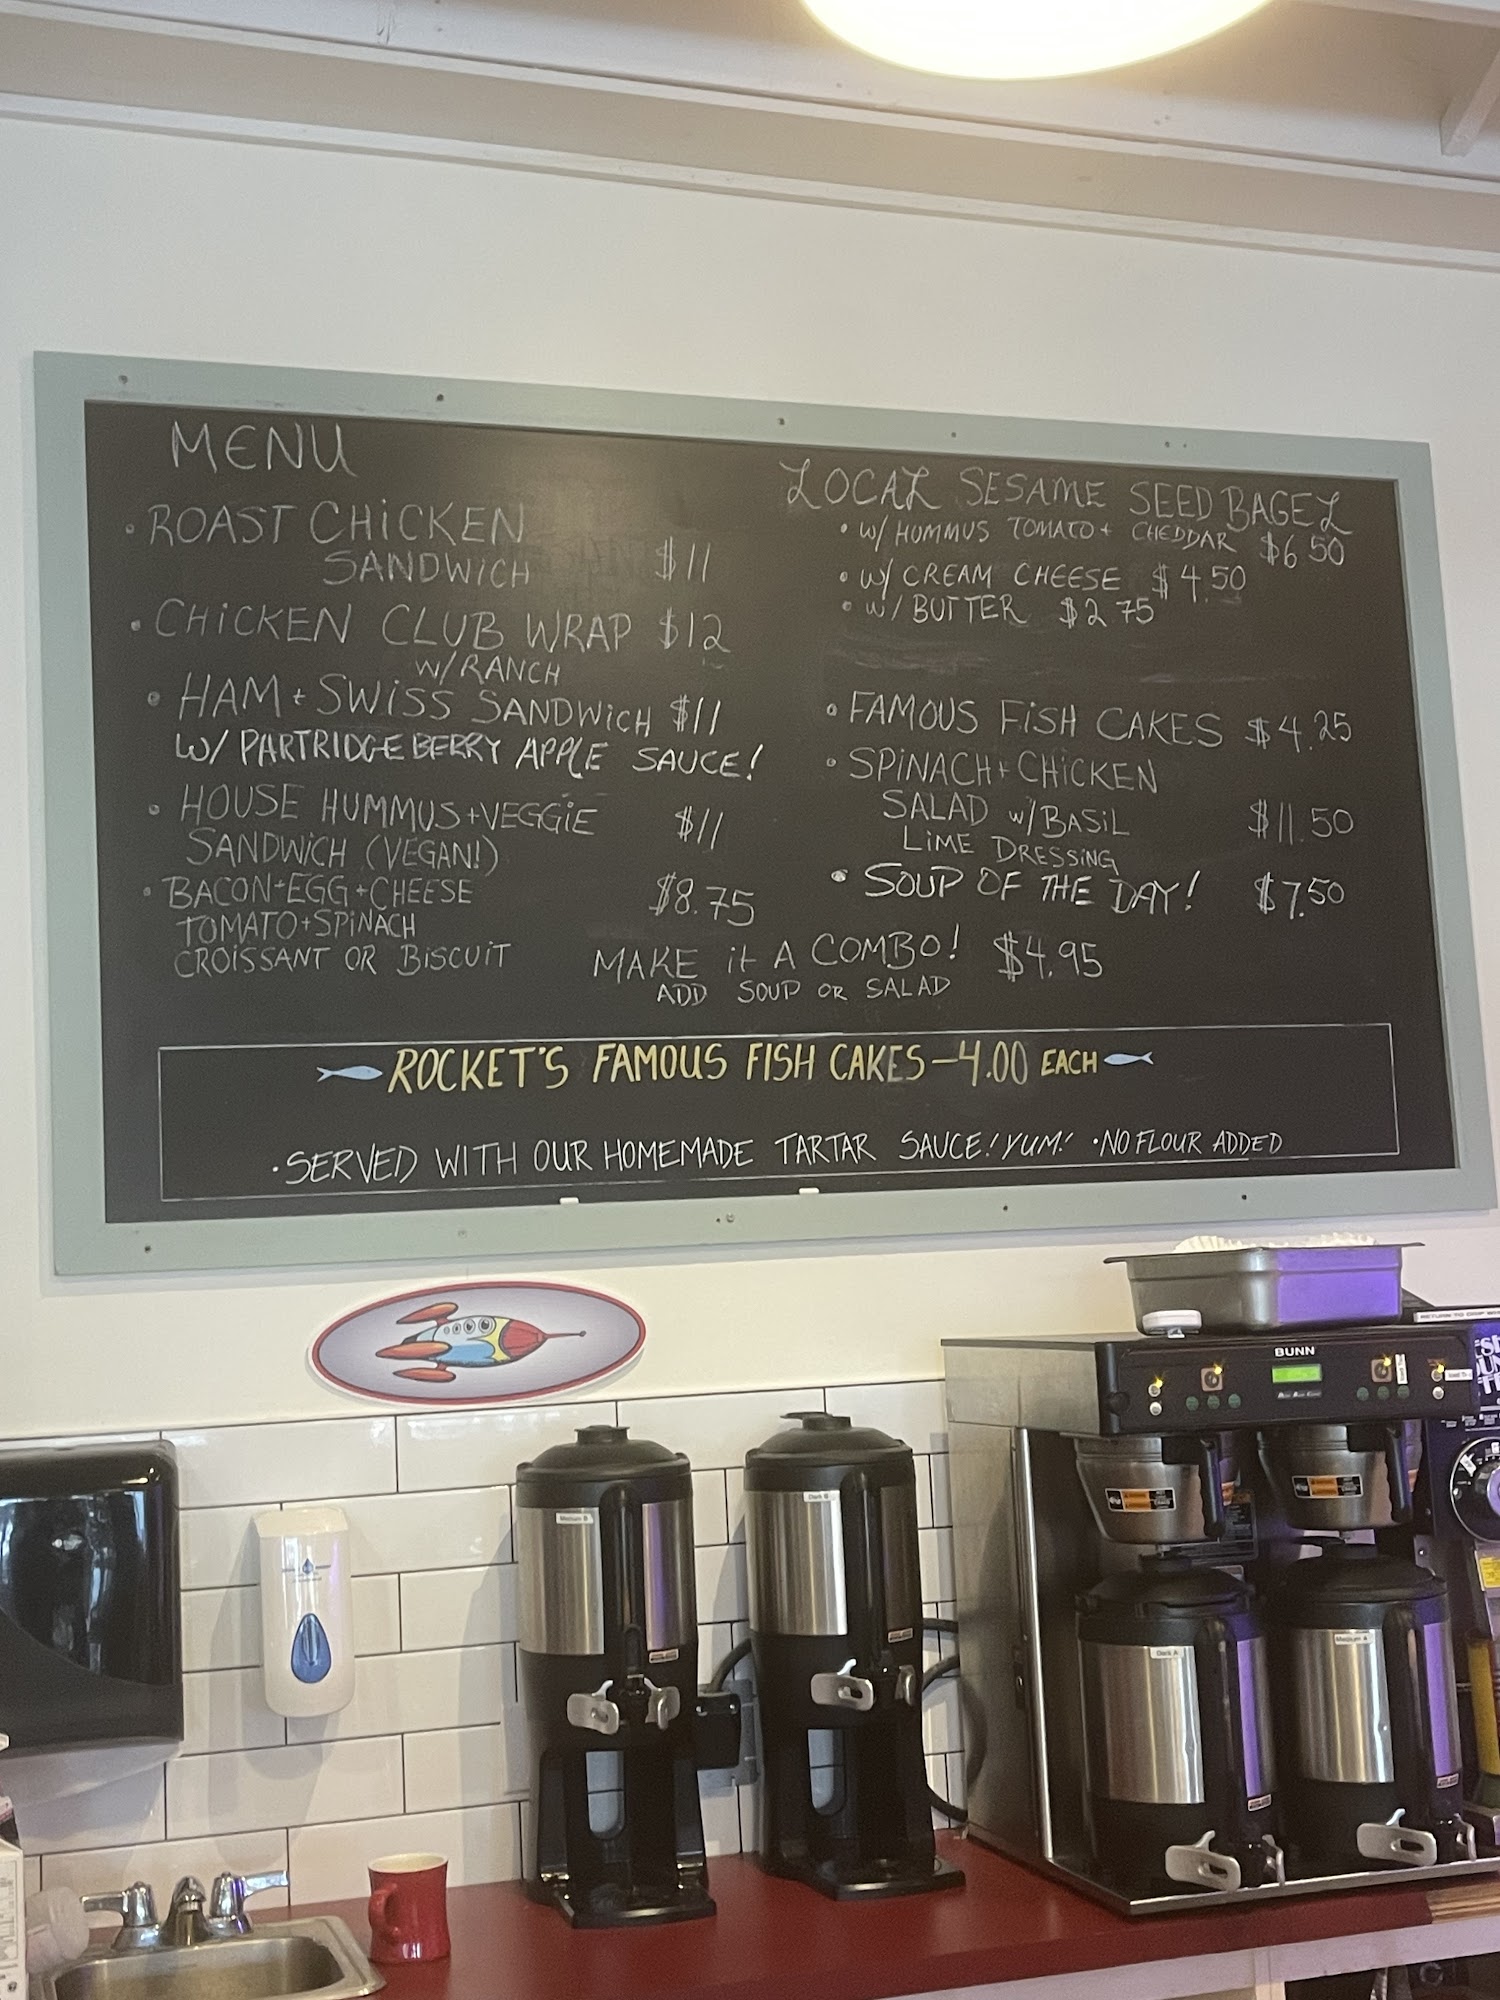 MENU
• ROAST CHiCKEN
SANDWiCH $11
• CHiCKEN CLUB WRAP $12
W/RANCH
• HAM + SWiSS SANDWiCH $11
W/ PARTRIDGEBERRY APPLE SAUCE!
• HOUSE HUMMUS+VEGGiE
SANDWiCH (VEGAN!) $11
• BACON+EGG+CHEESE
TOMATO+SPiNACH $8.75
CROiSSANT OR BiSCUiT
LOCAL SESAME SEED BAGEL
• W/ HUMMUS TOMATO + CHEDDAR $6.50
• W/ CREAM CHEESE $4.50
• W/ BUTTER $2.75
• FAMOUS FiSH CAKES $4.25
• SPiNACH + CHiCKEN
SALAD W/ BASiL $11.50
LiME DRESSiNG
• SOUP OF THE DAY! $7.50
MAKE it A COMBO! $4.95
ADD SOUP OR SALAD
ROCKET'S FAMOUS FISH CAKES—4.00 EACH
• SERVED WITH OUR HOMEMADE TARTAR SAUCE! YUM! • NO FLOUR ADDED
BUNN
Medium B
Dark B
Dark A
Medium A